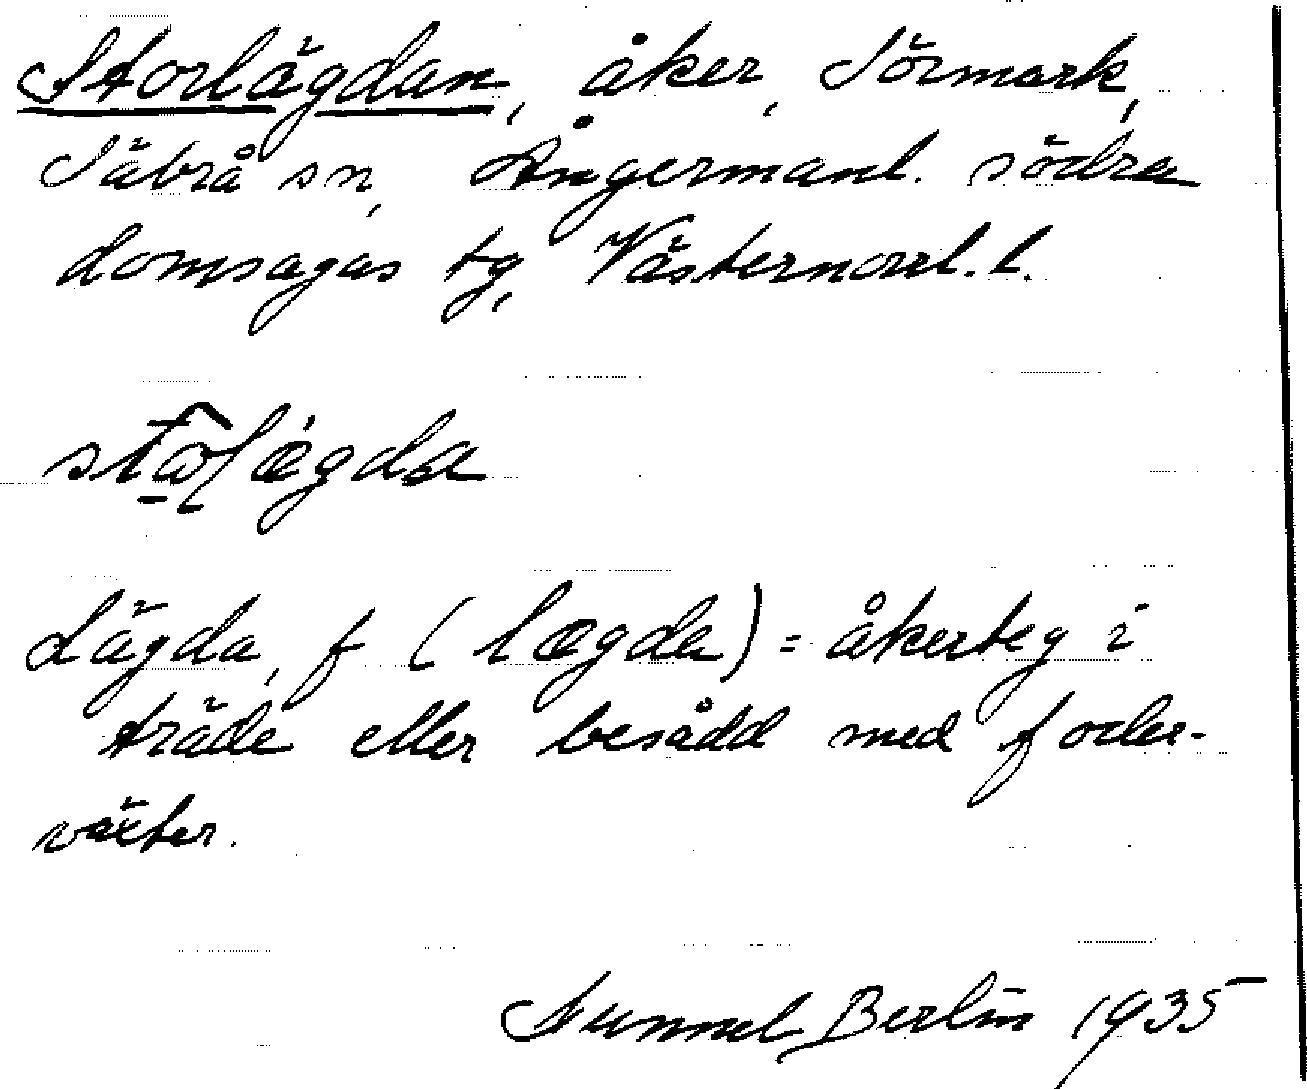 Storlägdan, åker, Sörmark,
Säbrå sn, Ångermanl. södra
domsagas tg, Västernorrl. l.
Lägda, f (lægda) = åkerteg i
träde eller besådd med foder-
växter.
Berlin 1935